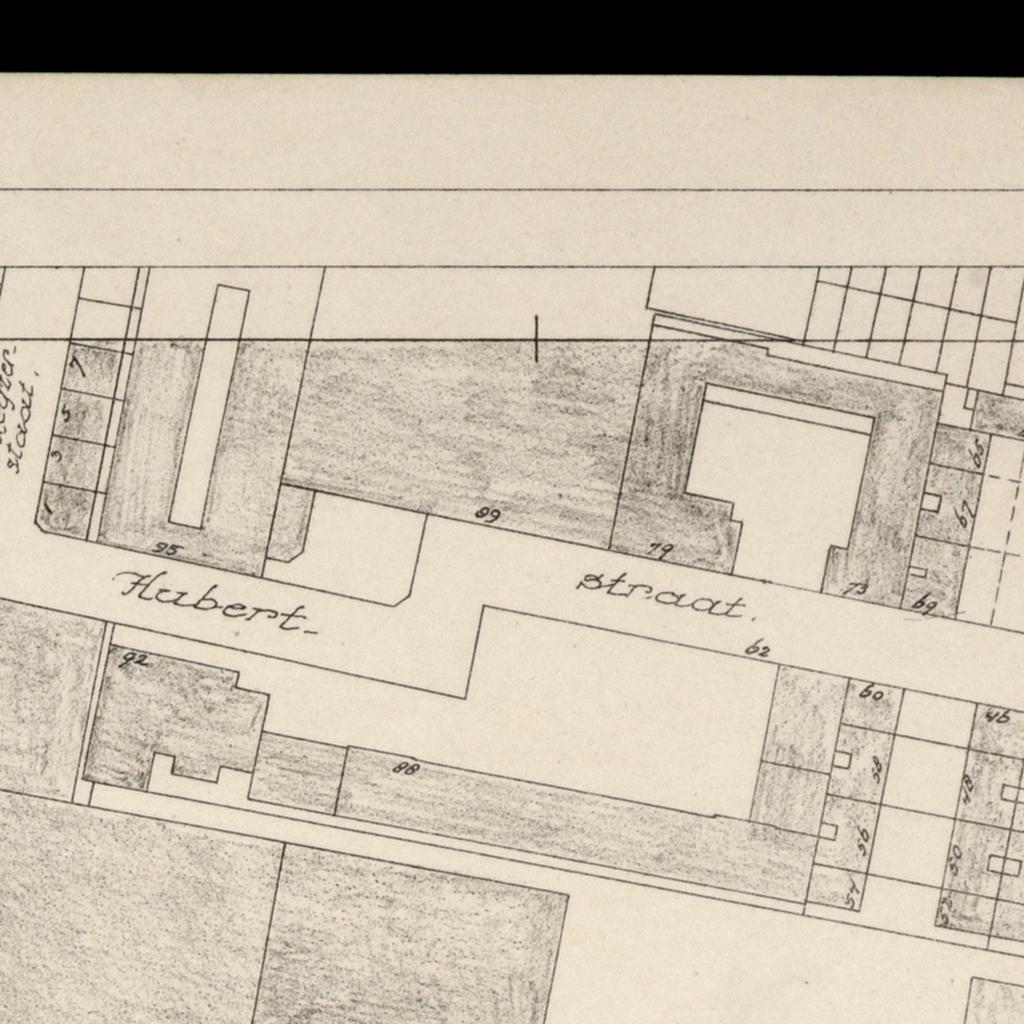 7
5
3
1
straat.
95
89
79
73
65
67
69
Hubert-
straat.
62
92
88
60
58
56
54
46
48
50
52